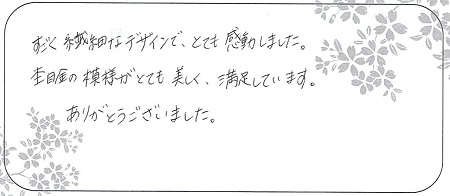 すごく繊細なデザインで、とても感動しました。
杢目金の模様がとても美しく、満足しています。
ありがとうございました。